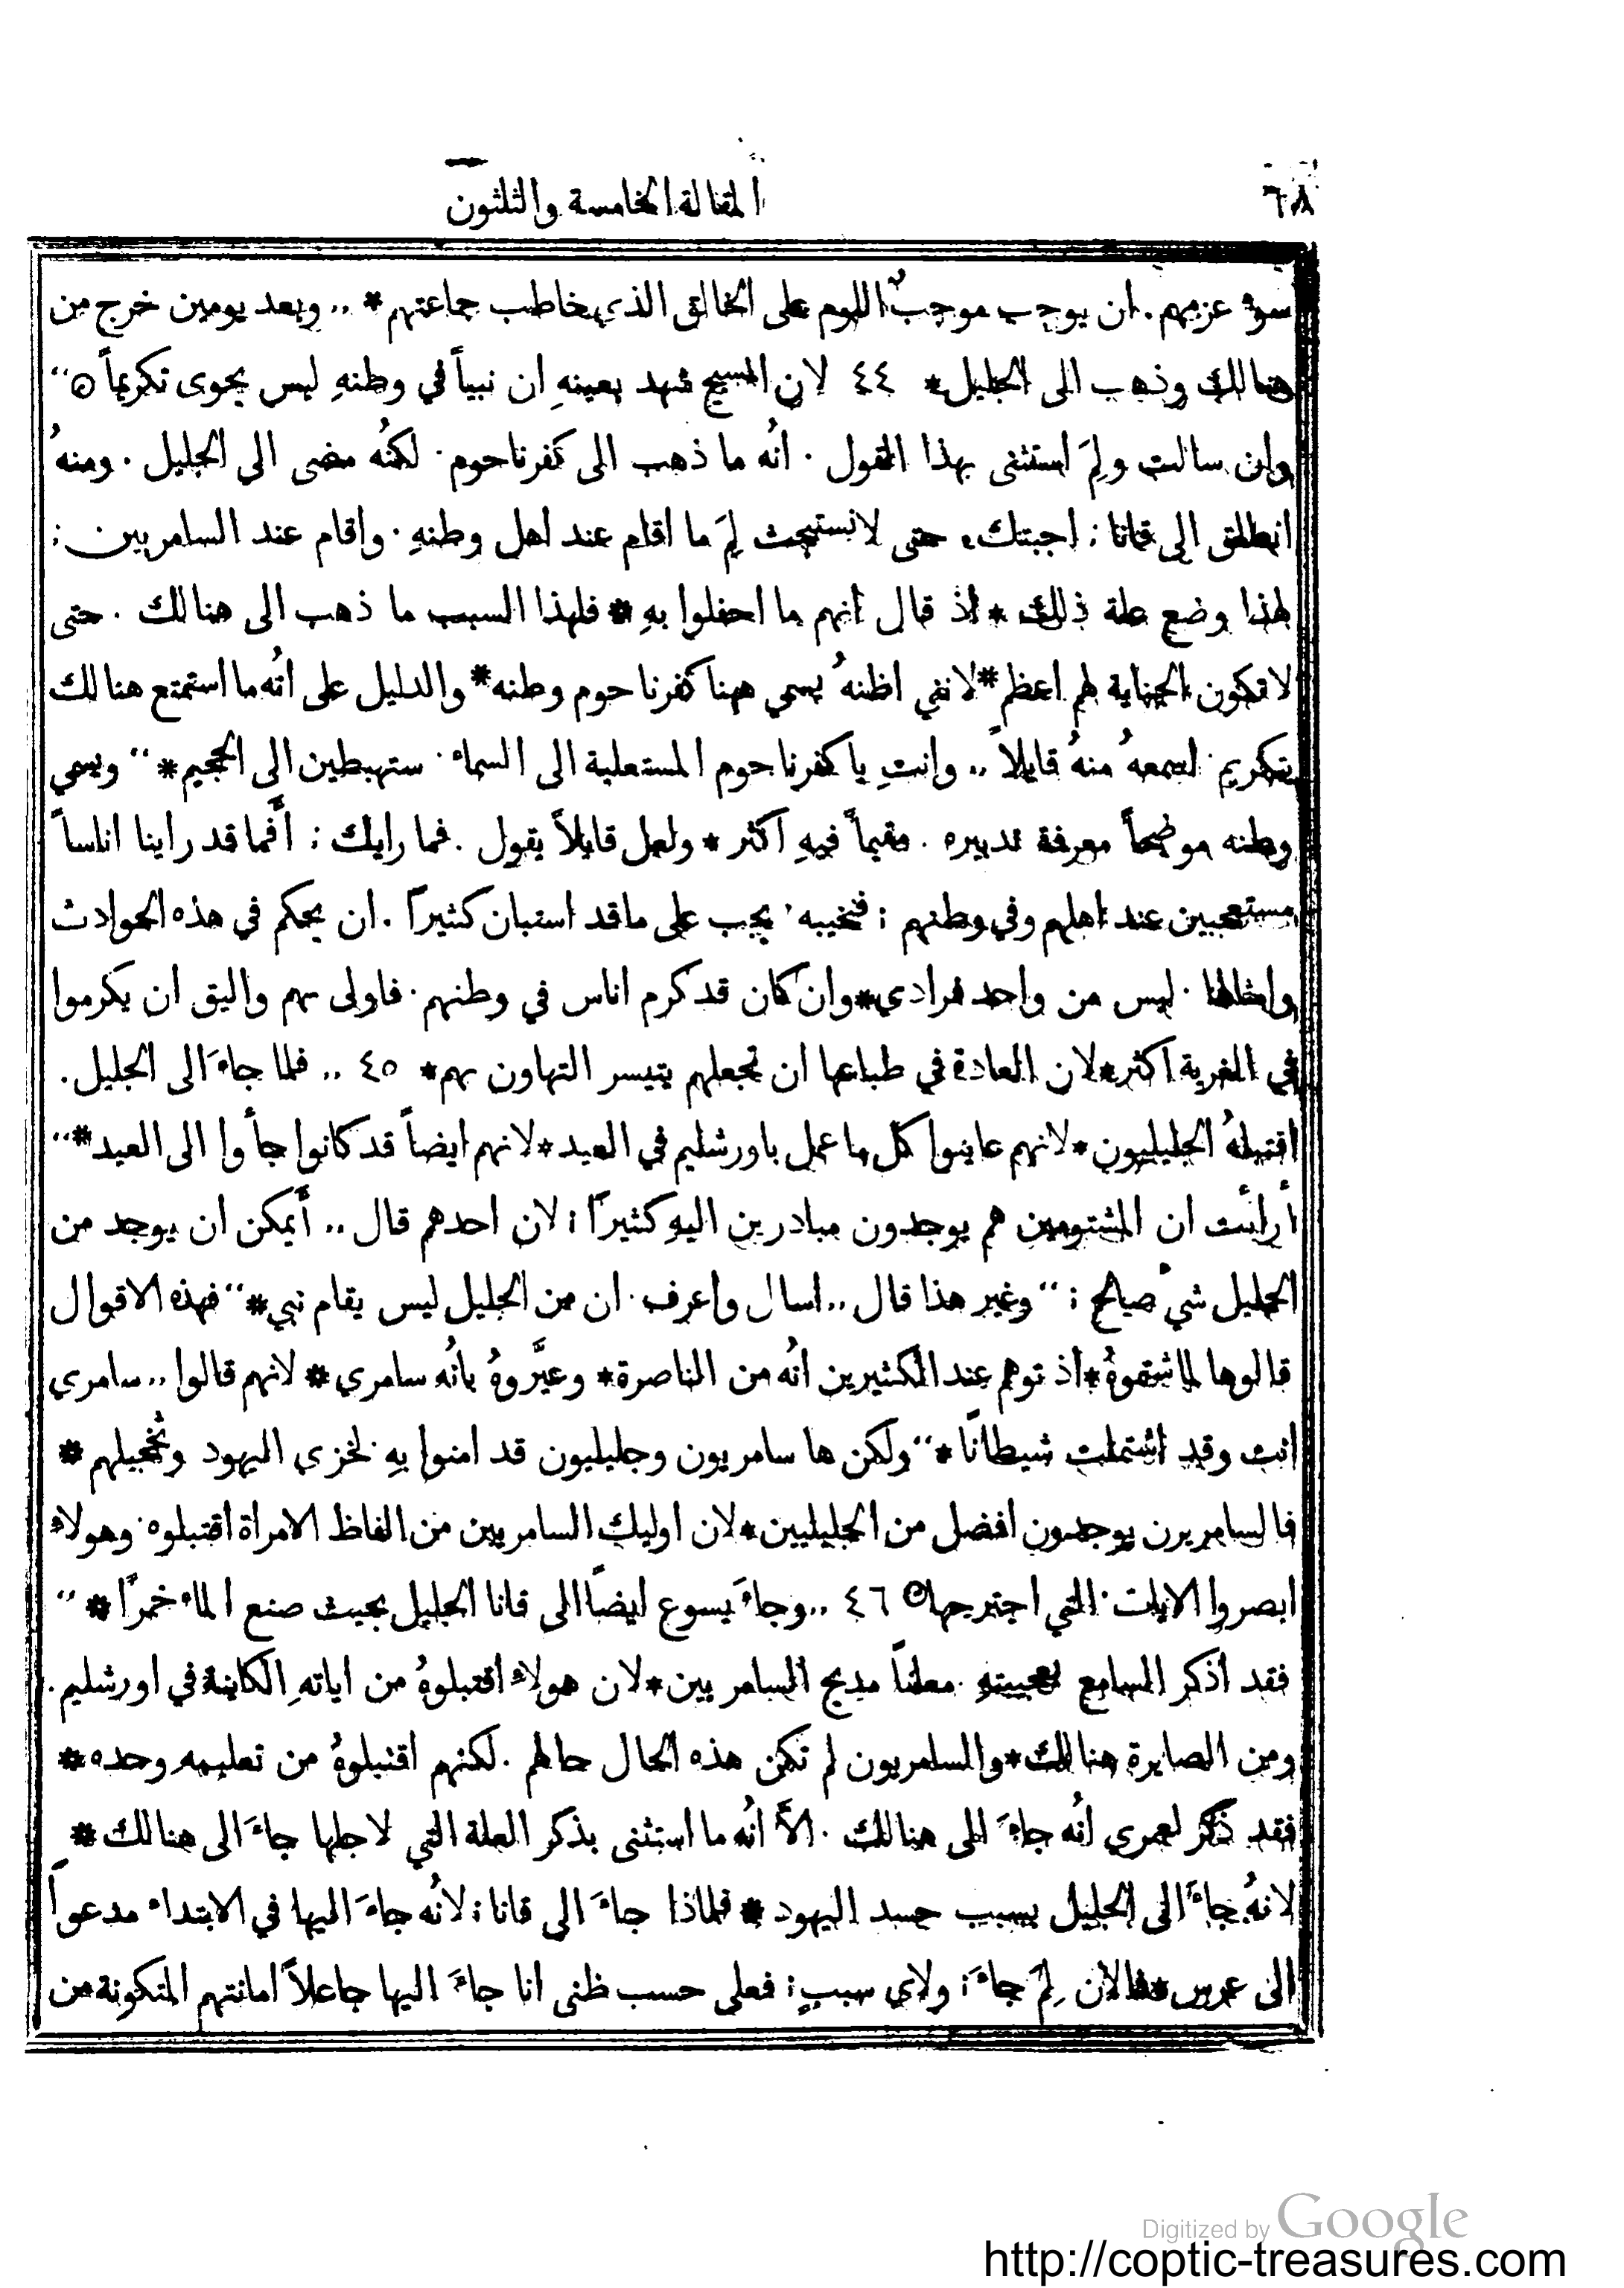 ٦٨ المقالة الخامسة والثلثون
سوء عزمهم. ان يوجب موجبٌ اللوم على الخالق الذي خاطب جماعتهم * ,, وبعد يومين خرج من
هنالك وذهب الى الجليل * ٤٤ لان المسيح شهد بعينهِ ان نبياً في وطنهِ ليس يحوى تكريماً ۞ ‘‘
وان سالت ولِمَ استثنى بهذا القول . انُه ما ذهب الى كفرناحوم . لكنُه مضى الى الجليل . ومنهُ
انطلق الى قانا ؛ اجبتك . حتى لا نستبحث لِمَ ما اقام عند اهل وطنهِ . واقام عند السامريين ؛
لهذا وضع علة ذلك * اذ قال انهم ما احفلوا بهِ * فلهذا السبب ما ذهب الى هنالك . حتى
لا تكون الجناية لهم اعظم * لانني اظنهُ يسمي ههنا كفرناحوم وطنه * والدليل على انُه ما استمتع هنالك
بتكريم . لتسمعهُ منهُ قايلاً ,, وانتِ يا كفرناحوم المستعلية الى السماء . ستهبطين الى الجحيم * ‘‘ ويسمي
وطنه موضحاً معرفة تدبيره . مقيماً فيهِ اكثر * ولعل قايلاً يقول . فما رايك ؛ أَفما قد راينا اناساً
مستعجبين عند اهلهم وفي وطنهم ؛ فنخيبه . يجب على ما قد استبان كثيراً . ان يحكم في هذه الحوادث
وامثالها . ليس من واحد فرادي * وان كان قد كرم اناس في وطنهم . فاولى بهم واليق ان يكرموا
في الغربة اكثر * لان العادة في طباعها ان تجعلهم يتيسر التهاون بهم * ٤٥ ,, فلما جاءَ الى الجليل .
اقتبلهُ الجليليون * لانهم عاينوا كل ما عمل باورشليم في العيد * لانهم ايضاً قد كانوا جأوا الى العيد * ‘‘
أرأَيت ان المشتومين هم يوجدون مبادرين اليهِ كثيراً ؛ لان احدهم قال ,, أَيمكن ان يوجد من
الجليل شيٌ صالح ؛ ‘‘ وغير هذا قال ,, اسال واعرف . ان من الجليل ليس يقام نبي * ‘‘ فهذه الاقوال
قالوها لما شقوهُ * اذ توهم عند الكثيرين انُه من الناصرة * وعيَّروهُ بانُه سامري * لانهم قالوا ,, سامري
انت وقد اشتملت شيطانًا * ‘‘ ولكن ها سامريون وجليليون قد امنوا بهِ لخزي اليهود وتُخجيلهم *
فالسامريون يوجدون افضل من الجليليين * لان اوليك السامريين من الفاظ الامراة اقتبلوه . وهولاء
ابصروا الايات . التي اجترحها ۞ ٤٦ ,, وجاءَ يسوع ايضًا الى قانا الجليل بحيث صنع الماء خمرًا * ‘‘
فقد اذكر السامع بعجيبتهِ . معلناً مديح السامريين * لان هولاءِ اقتبلوهُ من اياتهِ الكاينة في اورشليم .
ومن الصايرة هنالك * والسامريون لم تكن هذه الحال حالهم . لكنهم اقتبلوهُ من تعليمه وحده *
فقد ذكر لعمري انُه جاءَ الى هنالك . الاَّ انُه ما استثنى بذكر العلة التي لاجلها جاءَ الى هنالك *
لانهُ جاءَ الى الجليل بسبب حسد اليهود * فلماذا جاءَ الى قانا ؛ لانُه جاءَ اليها في الابتداء مدعواً
الى عرس * فالان لِمَ جاءَ ؛ ولاي سببٍ ؛ فعلى حسب ظنى انا جاءَ اليها جاعلاً امانتهم المتكونة من
Digitized by Google
http://coptic-treasures.com